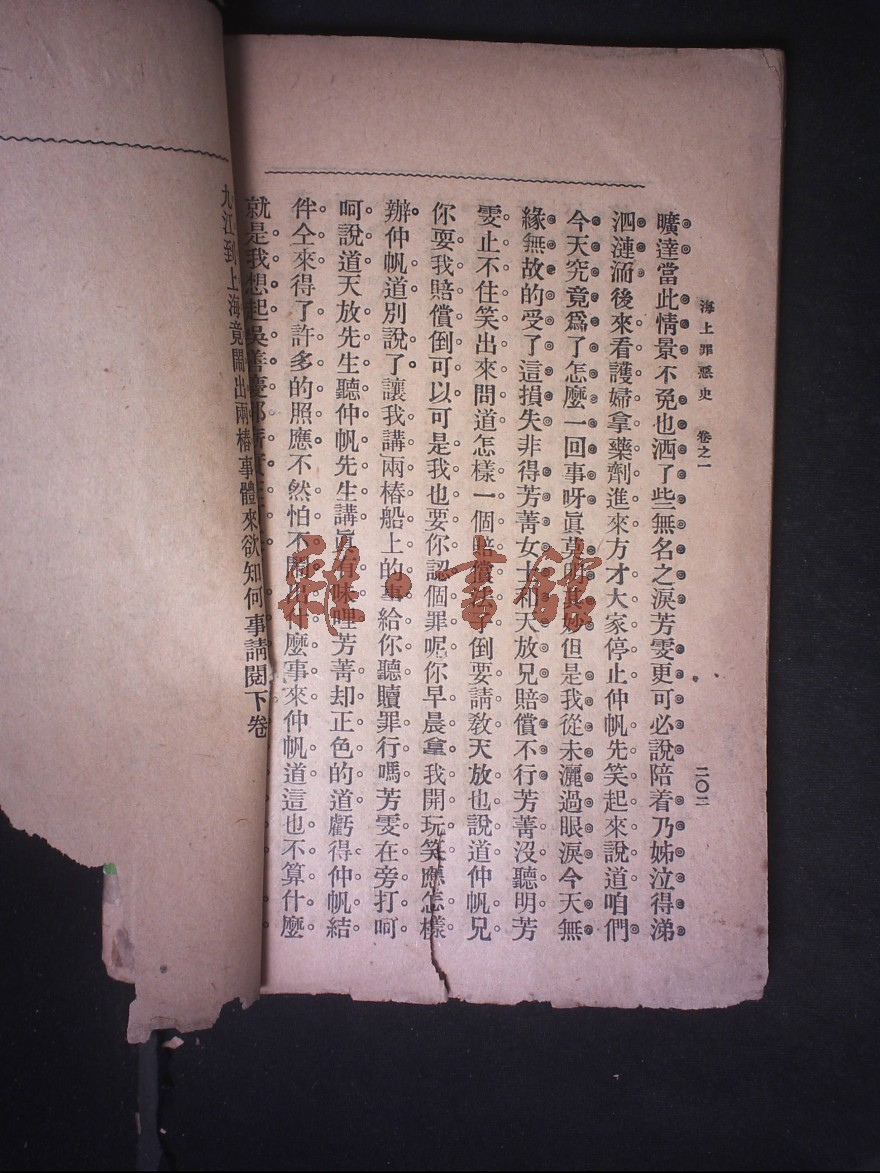 海上罪惡史　卷之一
二〇二
曠達當此情景不免也洒了些無名之淚芳雯更可必說陪着乃姊泣得涕
泗漣洏後來看護婦拿藥劑進來方才大家停止仲帆先笑起來說道咱們
今天究竟爲了怎麼一回事呀眞莫明其妙但是我從未灑過眼淚今天無
緣無故的受了這損失非得芳菁女士和天放兄賠償不行芳菁沒聽明芳
雯止不住笑出來問道怎樣一個賠償法子倒要請敎天放也說道仲帆兄
你要我賠償倒可以可是我也要你認個罪呢你早晨拿我開玩笑應怎樣
辦仲帆道別說了讓我講兩樁船上的事給你聽贖罪行嗎芳雯在旁打呵
呵說道天放先生聽仲帆先生講眞有味哩芳菁却正色的道虧得仲帆結
伴仝來得了許多的照應不然怕不鬧出什麼事來仲帆道這也不算什麼
就是我想起吳善慶那
九江到上海竟鬧出兩樁事體來欲知何事請閱下卷
雜·書館